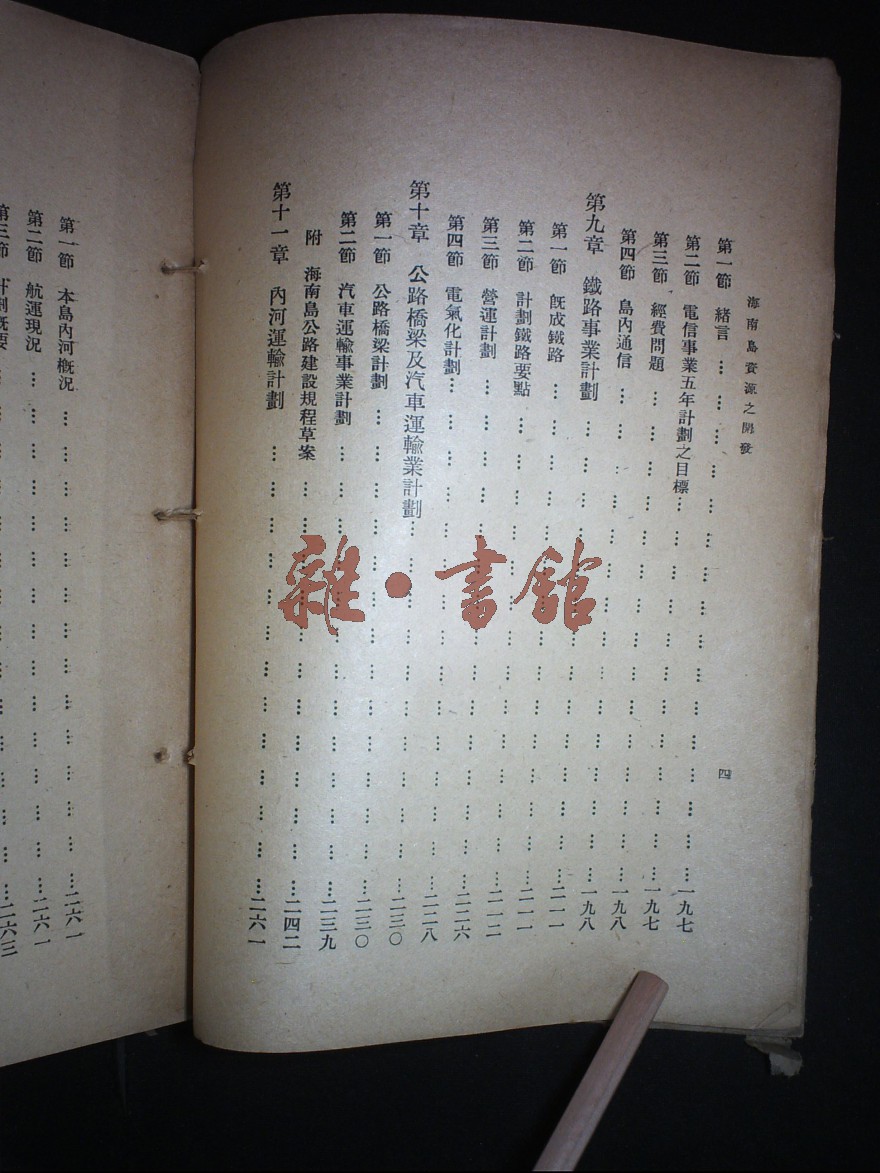 海南島資源之開發
四
第一節 緒言………………………………一九七
第二節 電信事業五年計劃之目標………………………………一九七
第三節 經費問題………………………………一九八
第四節 島內通信………………………………一九八
第九章 鐵路事業計劃………………………………二一一
第一節 既成鐵路………………………………二一一
第二節 計劃鐵路要點………………………………二一二
第三節 營運計劃………………………………二二六
第四節 電氣化計劃………………………………二二八
第十章 公路橋梁及汽車運輸業計劃………………………………二三〇
第一節 公路橋梁計劃………………………………二三〇
第二節 汽車運輸事業計劃………………………………二三九
附 海南島公路建設規程草案………………………………二四二
第十一章 內河運輸計劃………………………………二六一
第一節 本島內河概況………………………………二六一
第二節 航運現況………………………………二六一
第三節 計劃概要………………………………二六三
雜·書館